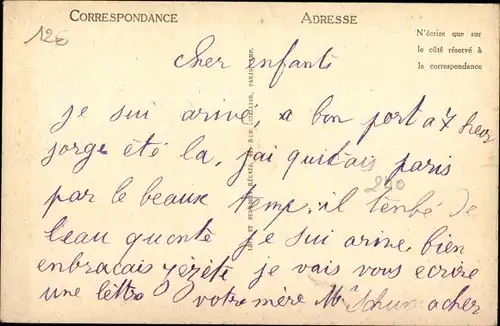 CORRESPONDANCE
ADRESSE
N'écrire que sur
le côté réservé à
la correspondance
12€
cher enfants
je sui arivé, a bon port a 7 heur
jorge été la, j'ai quitais paris
par le beaux temp. il tenbé de
l'eau quonte je sui arive bien
enbracais je vais vous ecrire
une lettre votre mère Mr Schumacher
240